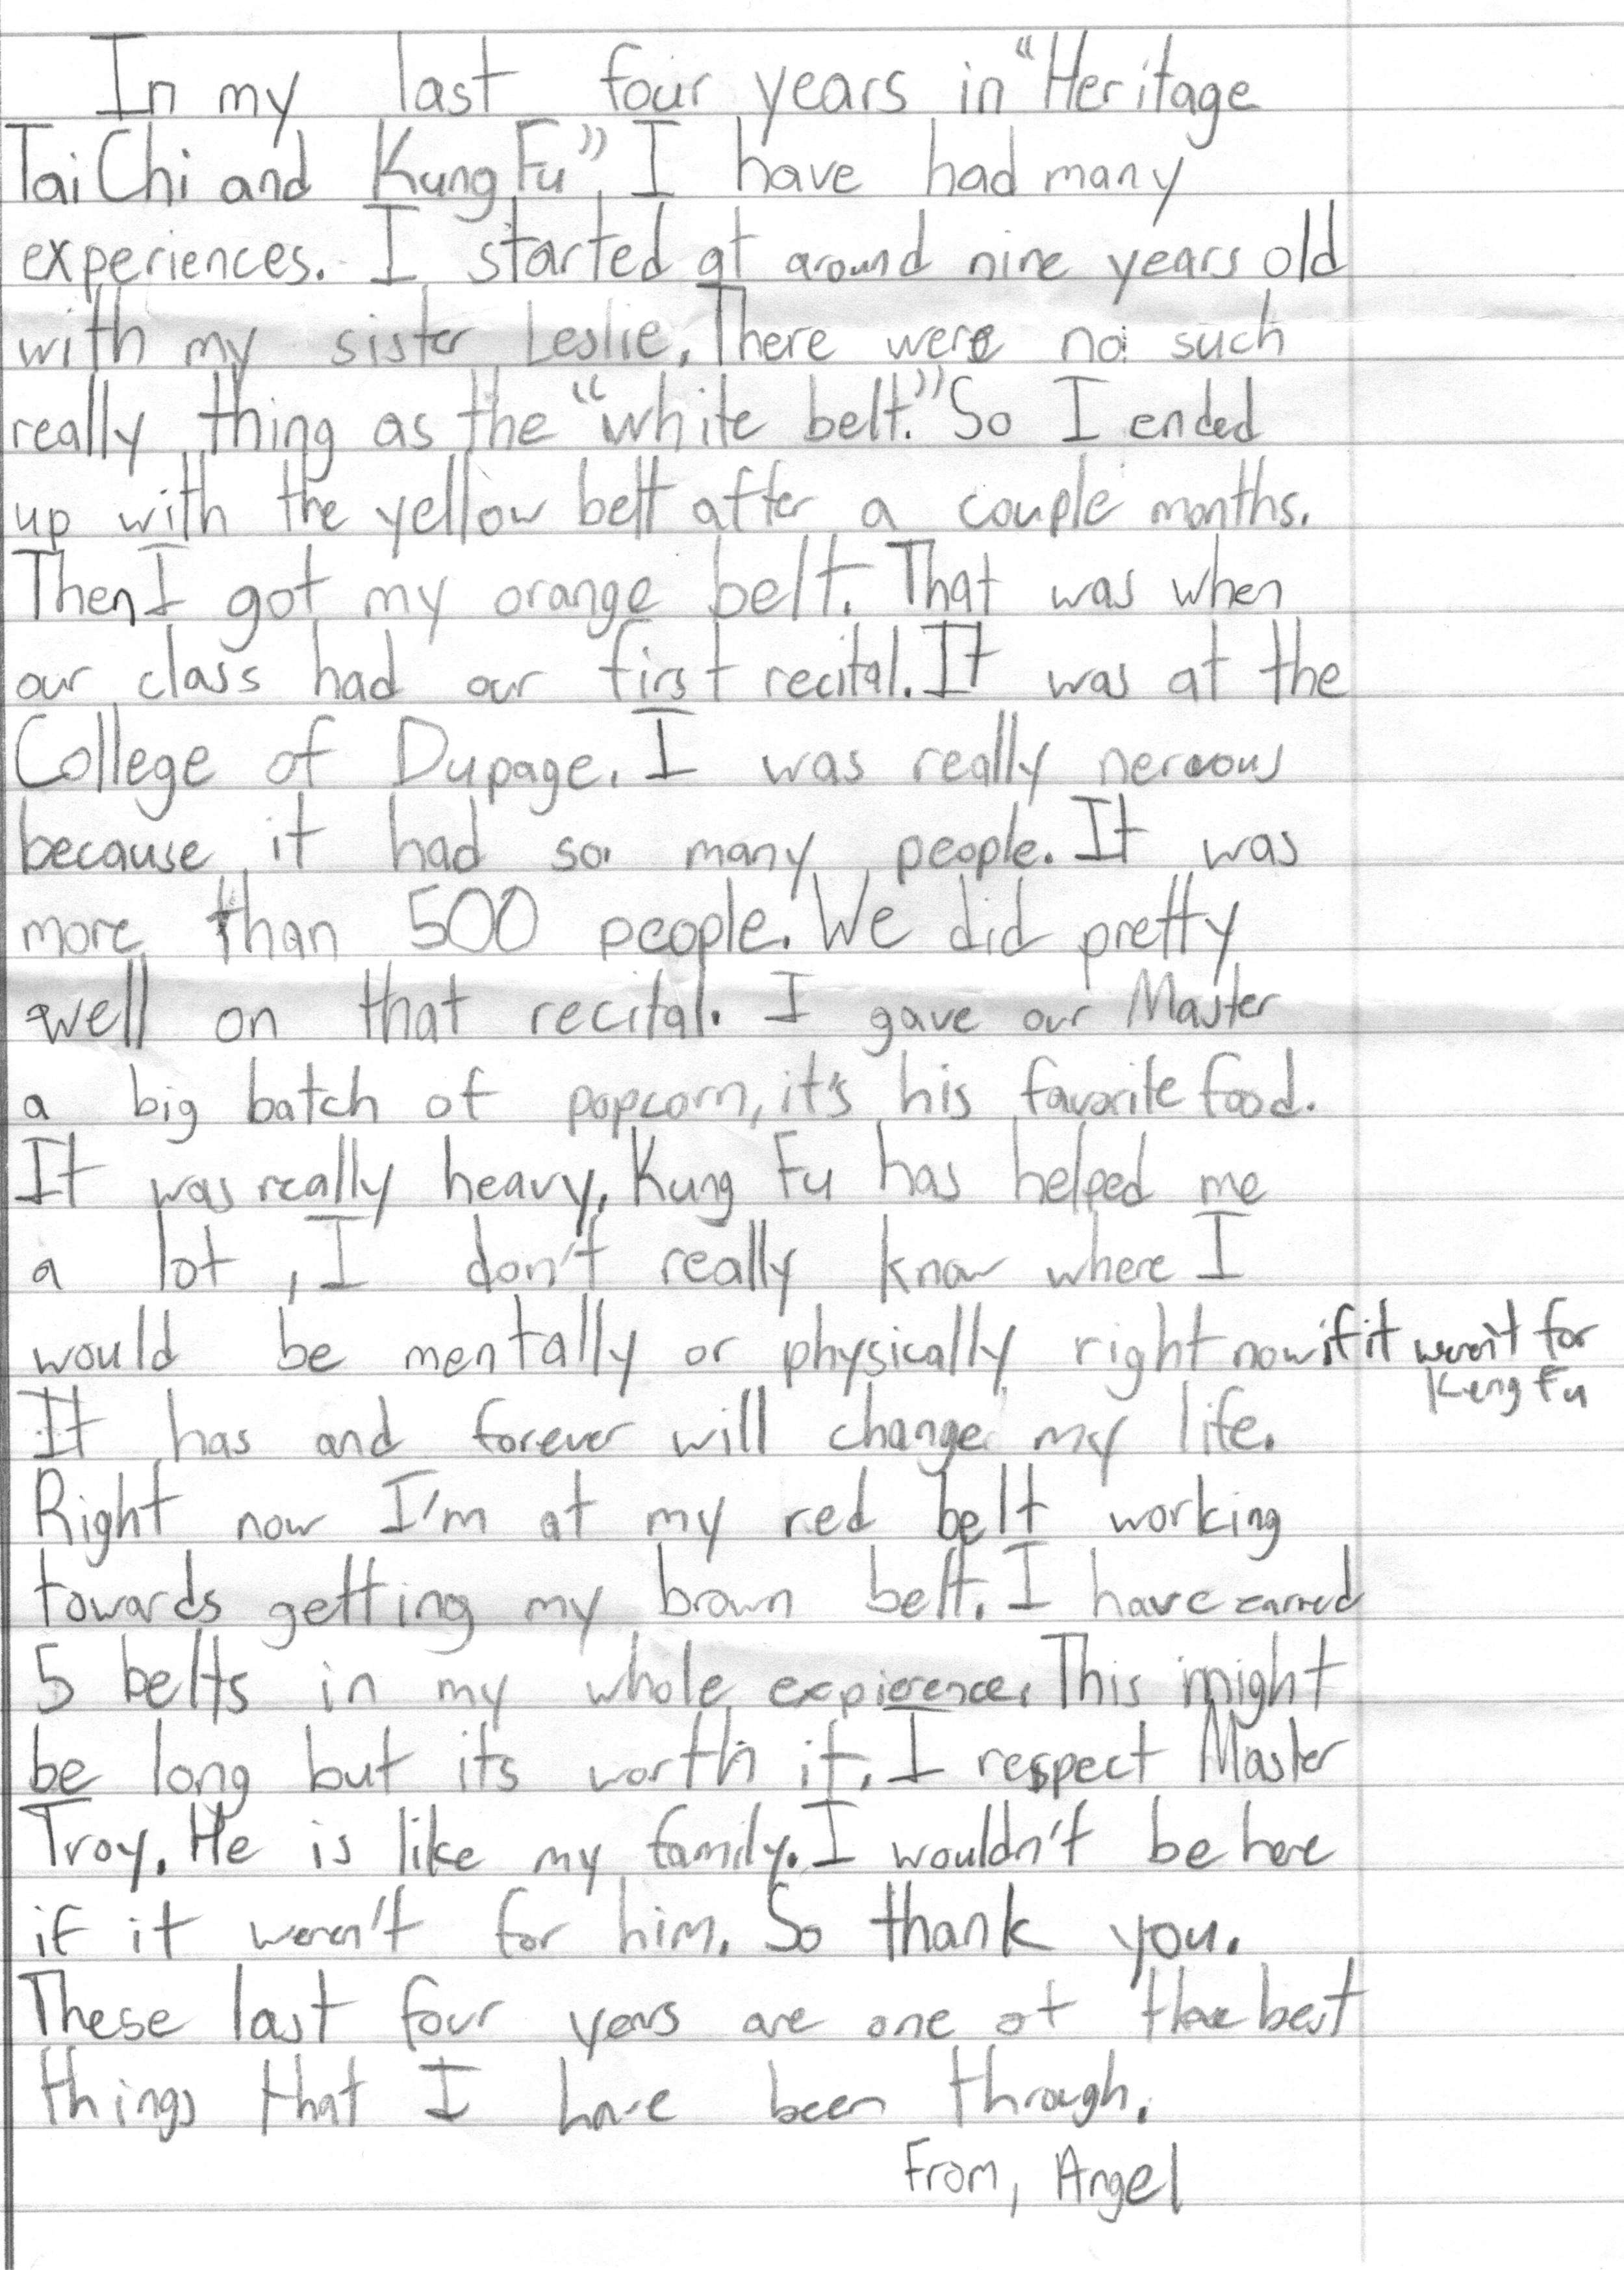 In my last four years in "Heritage
Tai Chi and Kung Fu", I have had many
experiences. I started at around nine years old
with my sister Leslie. There were no such
really thing as the "white belt." So I ended
up with the yellow belt after a couple months.
Then I got my orange belt. That was when
our class had our first recital. It was at the
College of Dupage. I was really nervous
because it had so many people. It was
more than 500 people. We did pretty
well on that recital. I gave our Master
a big batch of popcorn, it's his favorite food.
It was really heavy. Kung Fu has helped me
a lot, I don't really know where I
would be mentally or physically right now if it weren't for
Kung Fu
It has and forever will change my life.
Right now I'm at my red belt working
towards getting my brown belt. I have earned
5 belts in my whole expierence. This might
be long but its worth it. I respect Master
Troy. He is like my family. I wouldn't be here
if it weren't for him. So thank you.
These last four years are one of the best
things that I have been through.
From, Angel